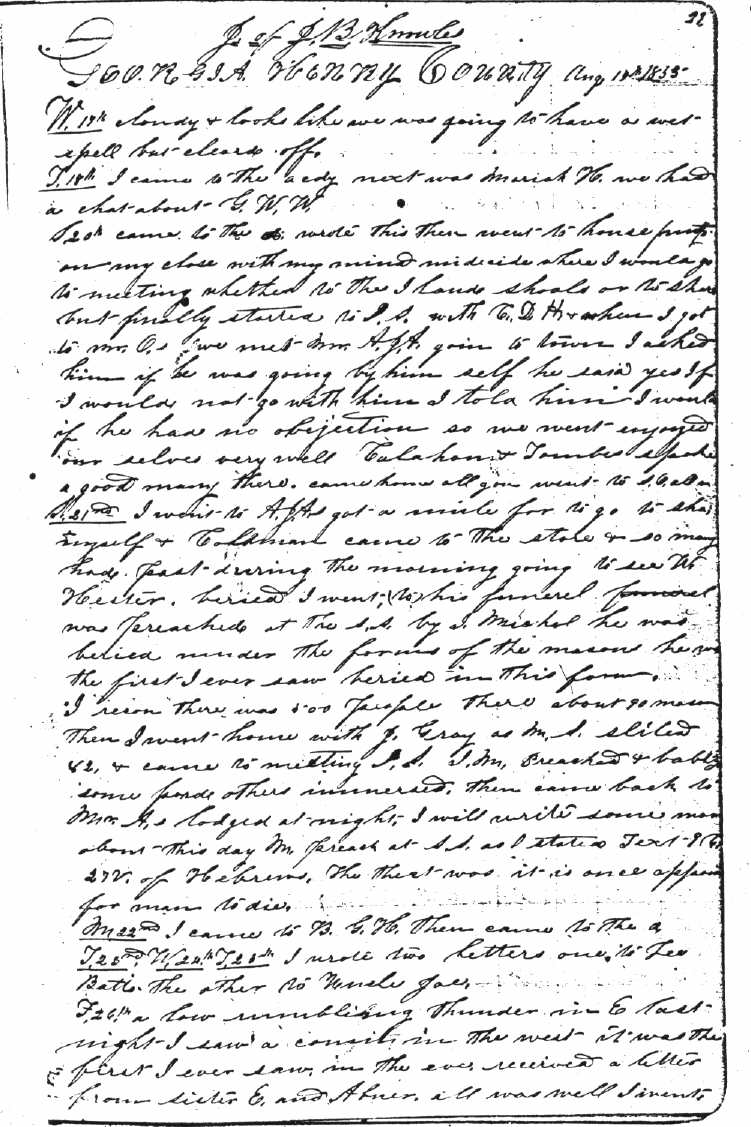 22
J of J. B. Knowles
GEORGIA. HENRY COUNTY Aug 1853
W. 18th cloudy & looks like we was going to have a wet
spell but cleard off.
T. 18th I came to the acdy next was Mariah H. we had
a chat about G. W. W.
S 20th came to the wrote this then went to house put
on my close with my mind undecide where I would go
to meeting whether to the Ilands shoals or to
but finally started to I. S. with C. D. H. & when I got
to Mr. O.s we met Mr. A. J. A. goin to town I asked
him if he was going by him self he said yes If
I would not go with him I told him I would
if he had no objection so we went enjoyed
our selves very well Calahan & Tombs spoke
a good many there. came home all gon went to
S. 21st I went to A. J. As got a mule for to go to
myself & Coleman came to the store & so many
had past during the morning going to see W
Hester. beried I went (to) his funerel funeral
was preached at the S. S. by I. Mickel he was
beried under the forms of the masons he was
the first I ever saw beried in this form.
I recon there was 500 people there about 90 mason
then I went home with J. Gray as M. S.
82, & came to meeting I. S. I. M. Preached &
some others immersed, then came back to
Mr. A.s lodged at night, I will write some more
about this day M. preach at S. S. as I stated Text 9
27 V. of Hebrews. The theat was it is once
for man to die.
M, 22nd I came to B. G. H. then came to the a
T, 23rd W, 24th T, 25th I wrote two letters one to
Batts the other to Uncle Joe,
F. 26th a low rumbling thunder in E last
night I saw a comit in the west it was the
first I ever saw in the eve received a letter
from sister E. and Abner. all was well I went